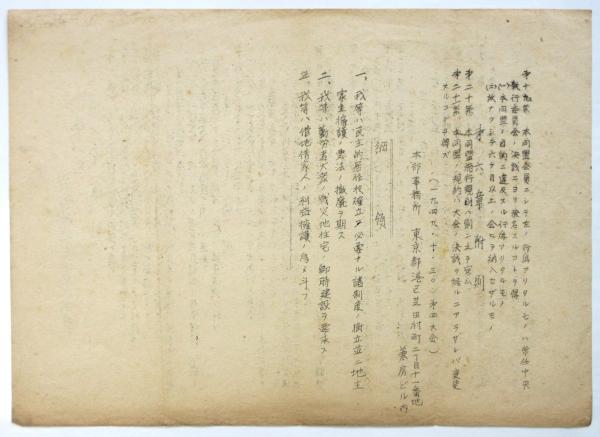 第十九条 本同盟盟員ニシテ左ノ行為アリタルモノハ常任中央
執行委員会ノ決議ニヨリ除名スルコトヲ得
(一)本同盟ノ目的ニ違反スル行為アリタルモノ
(二)故ナクシテ六ケ月以上ノ会ヒヲ納入セザルモノ
第六章 附則
第二十条 本同盟施行規則ハ別ニ之ヲ定ム
第二十一条 本同盟ノ規約ハ大会ノ決議ヲ経ルニアラザレバ変更
スルコトヲ得ズ
(一九四九・十・三〇 第四大会)
本部事務所 東京都港区芝田村町二丁目十一番地
兼房ビル内
綱領
一、我等ハ民主的居住权確立ニ必要ナル諸制度ノ樹立並ニ地主
家主擁護ノ悪法ノ撤廃ヲ期ス
二、我等ハ勤労者大衆ノ戦災地住宅ノ即時建設ヲ要求ス
三、我等ハ借地借家人ノ利益擁護ノ為メ斗フ